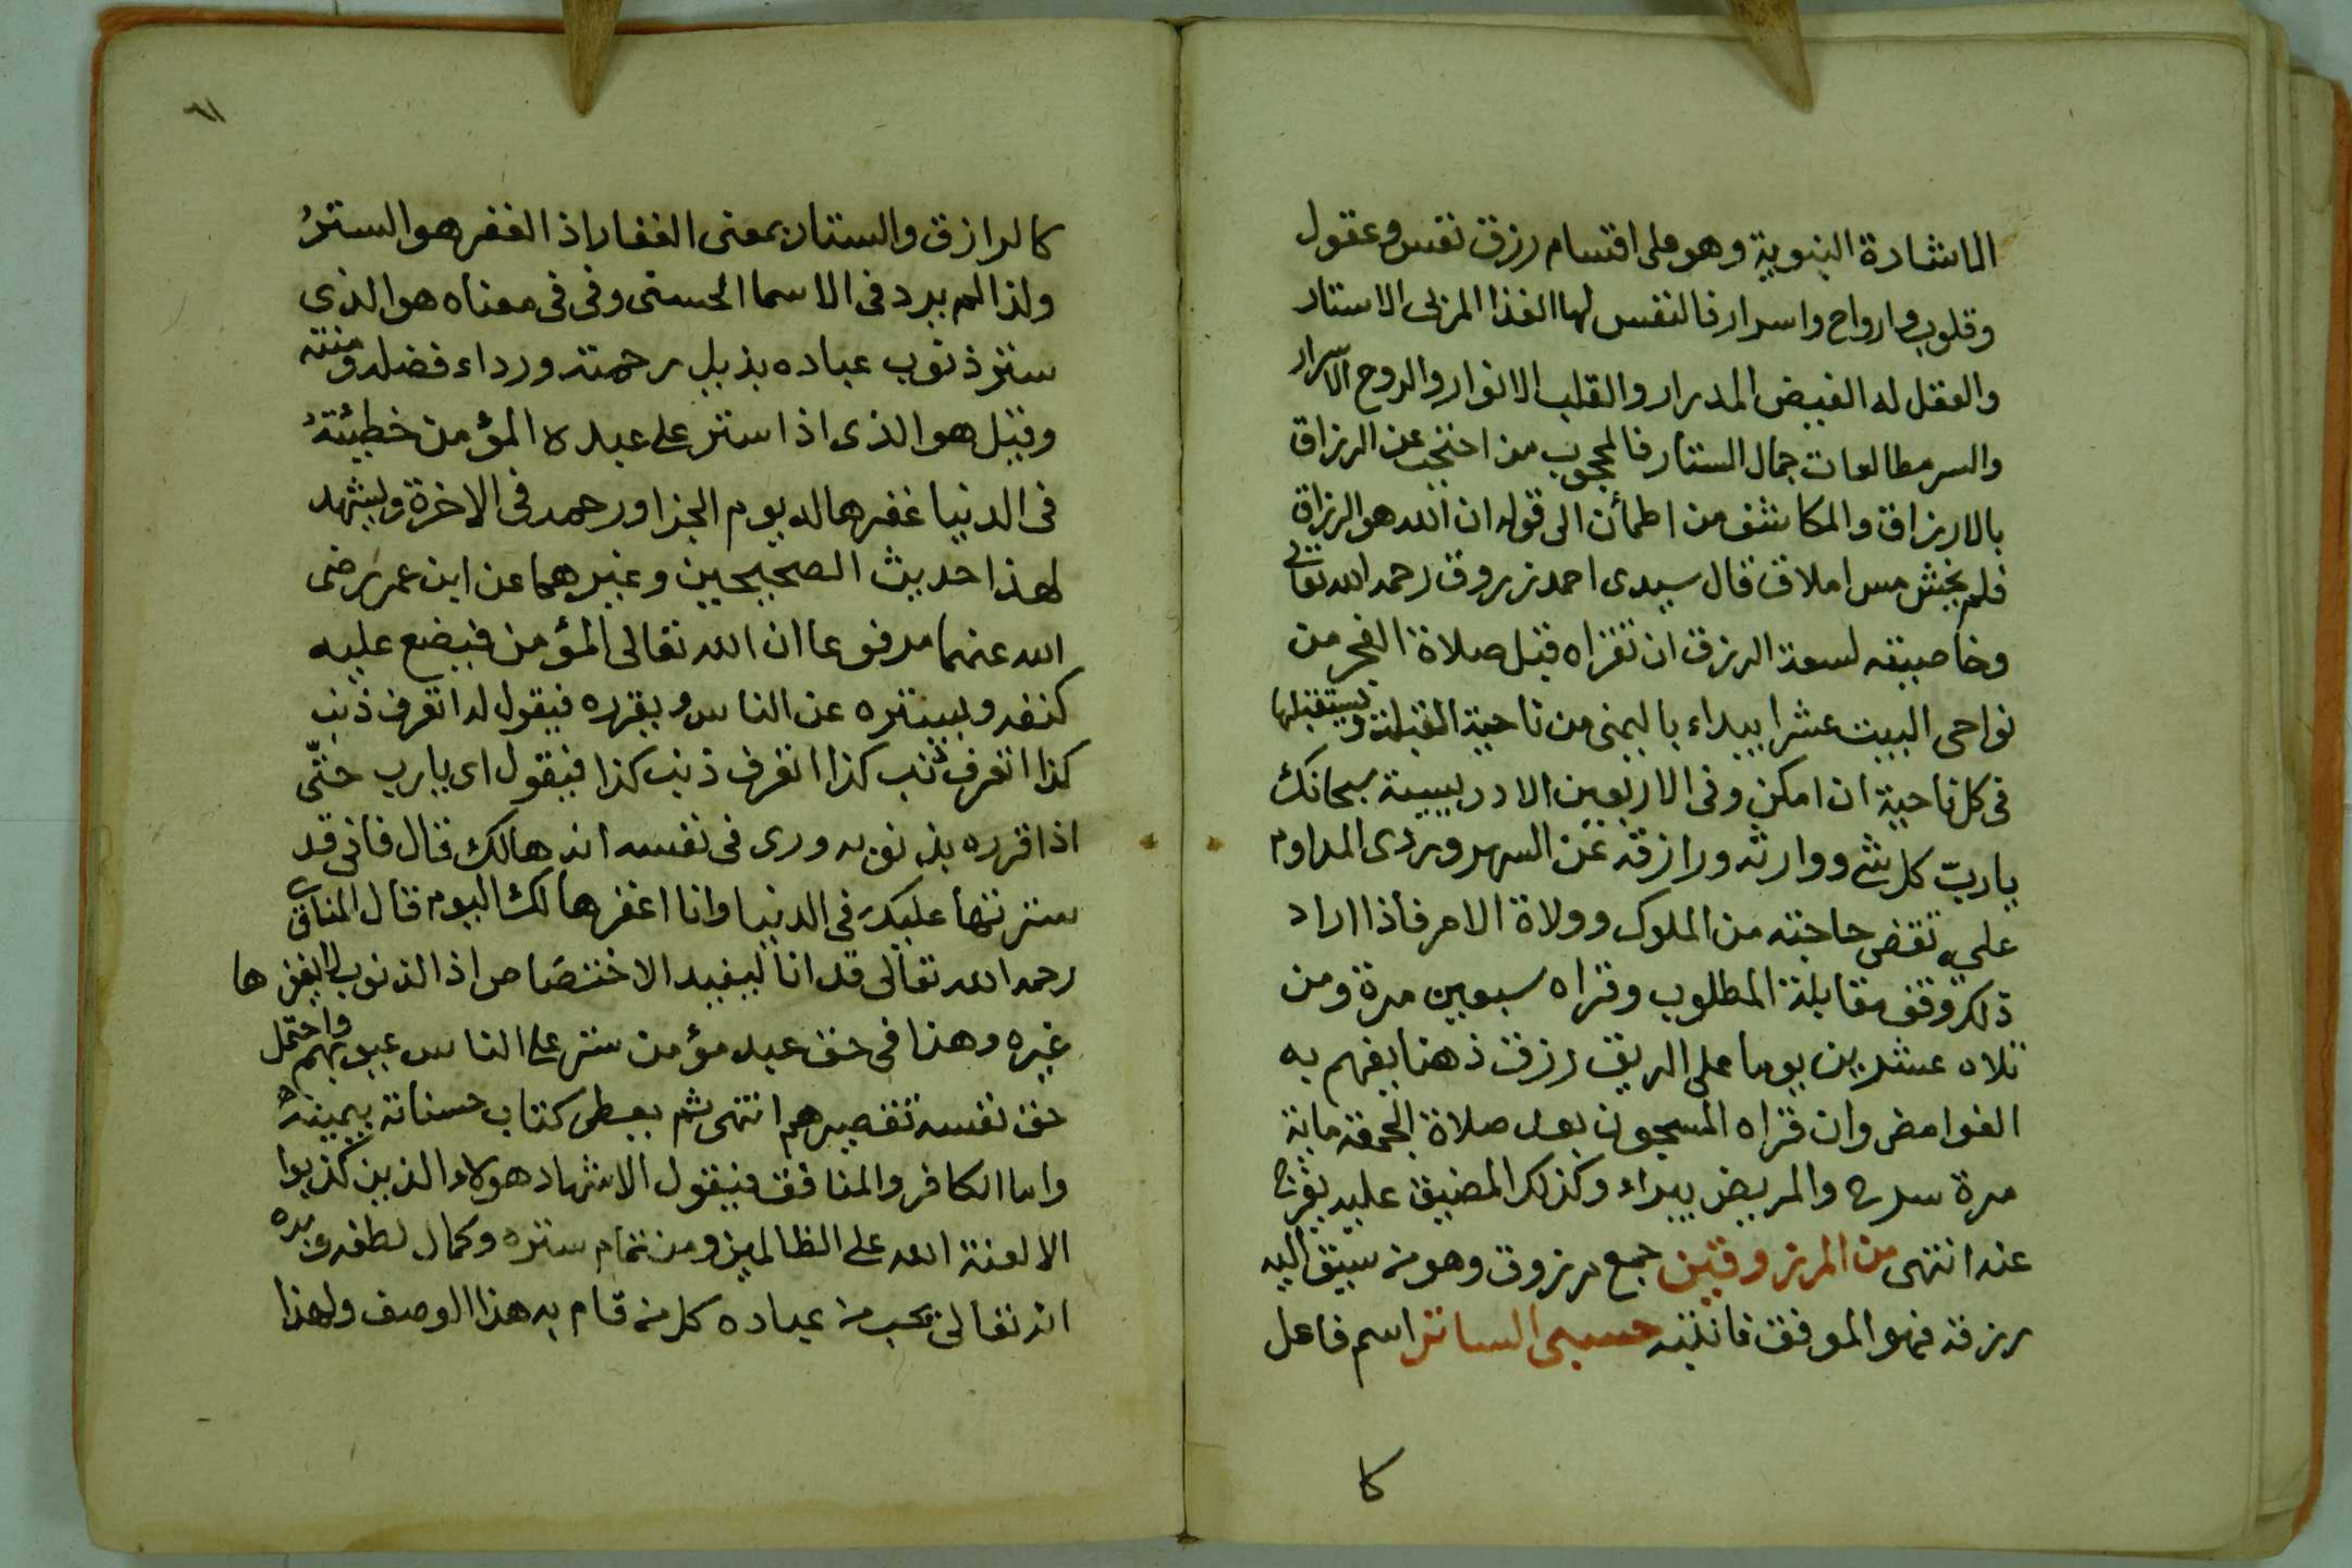 الاشارة النبوية وهو على اقسام رزق نفس وعقول
وقلوب وارواح واسرار فالنفس لها الغذا المزبى الاستار
والعقل له الفيض المدرار والقلب الانوار والروح الاسرار
والسر مطالعات جمال الستار فالمحجوب من احتجب عن الرزاق
بالارزاق والمكاشف من اطمأن الى قوله ان الله هو الرزاق
فلم يخش مس املاق قال سيدى احمد زروق رحمه الله تعالى
وخاصيته لسعة الرزق ان تقراه قبل صلاة الفجر من
نواحى البيت عشرا يبداء باليمنى من ناحية القبلة ويستقبلها
فى كل ناحية ان امكن وفى الاربعين الادريسية سبحانك
يا ربّ كل شى ووارثه ورازقه عن السهروردى المداوم
عليه تقضى حاجته من الملوك وولاة الامر فاذا اراد
ذلك وقف مقابلة المطلوب وقراه سبعين مرة ومن
تلاه عشرين يوما على الريق رزق ذهنا يفهم به
الغوامض وان قراه المسجون بعد صلاة الجمعة ماية
مرة سرح والمريض يبراء وكذلك المضيق عليه يفرج
عنه انتهى من المرزوقين جمع مرزوق وهو من سبق اليه
رزقه فهو الموفق فانتبه حسبى الساتر اسم فاعل
كا
٦١
كالرازق والستار بمعنى الغفار اذ الغفر هو السترُ
ولذا لم يرد فى الاسما الحسنى وفى فى معناه هو الذى
ستر ذنوب عباده بذيل رحمته ورداء فضله ومنته
وقيل هو الذى اذا ستر على عبده المؤمن خطيئتهُ
فى الدنيا غفرها له يوم الجزا ورحمه فى الاخرة ويشهد
لهذا حديث الصحيحين وغيرهما عن ابن عمر رضى
الله عنهما مرفوعا ان الله تعالى المؤمن فيضع عليه
كنفه ويستره عن الناس ويقرره فيقول له اتعرف ذنب
كذا اتعرف ذنب كذا اتعرف ذنب كذا فيقول اى يارب حتّى
اذا قرره بذنوبه ورى فى نفسه انه هالك قال فانى قد
سترتها عليك فى الدنيا وانا اغفرها لك اليوم قال المناوى
رحمه الله تعالى قدم انا ليفيد الاختصاص اذ الذنوب لا يغفرها
غيره وهذا فى حق عبد مؤمن ستر على الناس عيوبهم واحتمل
حق نفسه تقصيرهم انتهى ثم يعطى كتاب حسناته بيمينه
واما الكافر والمنافق فيقول الاشهاد هولاء الذين كذبوا
الا لعنة الله على الظالمين ومن تمام ستره وكمال لطفه وبره
انه تعالى يحب من عباده كل من قام به هذا الوصف ولهذا